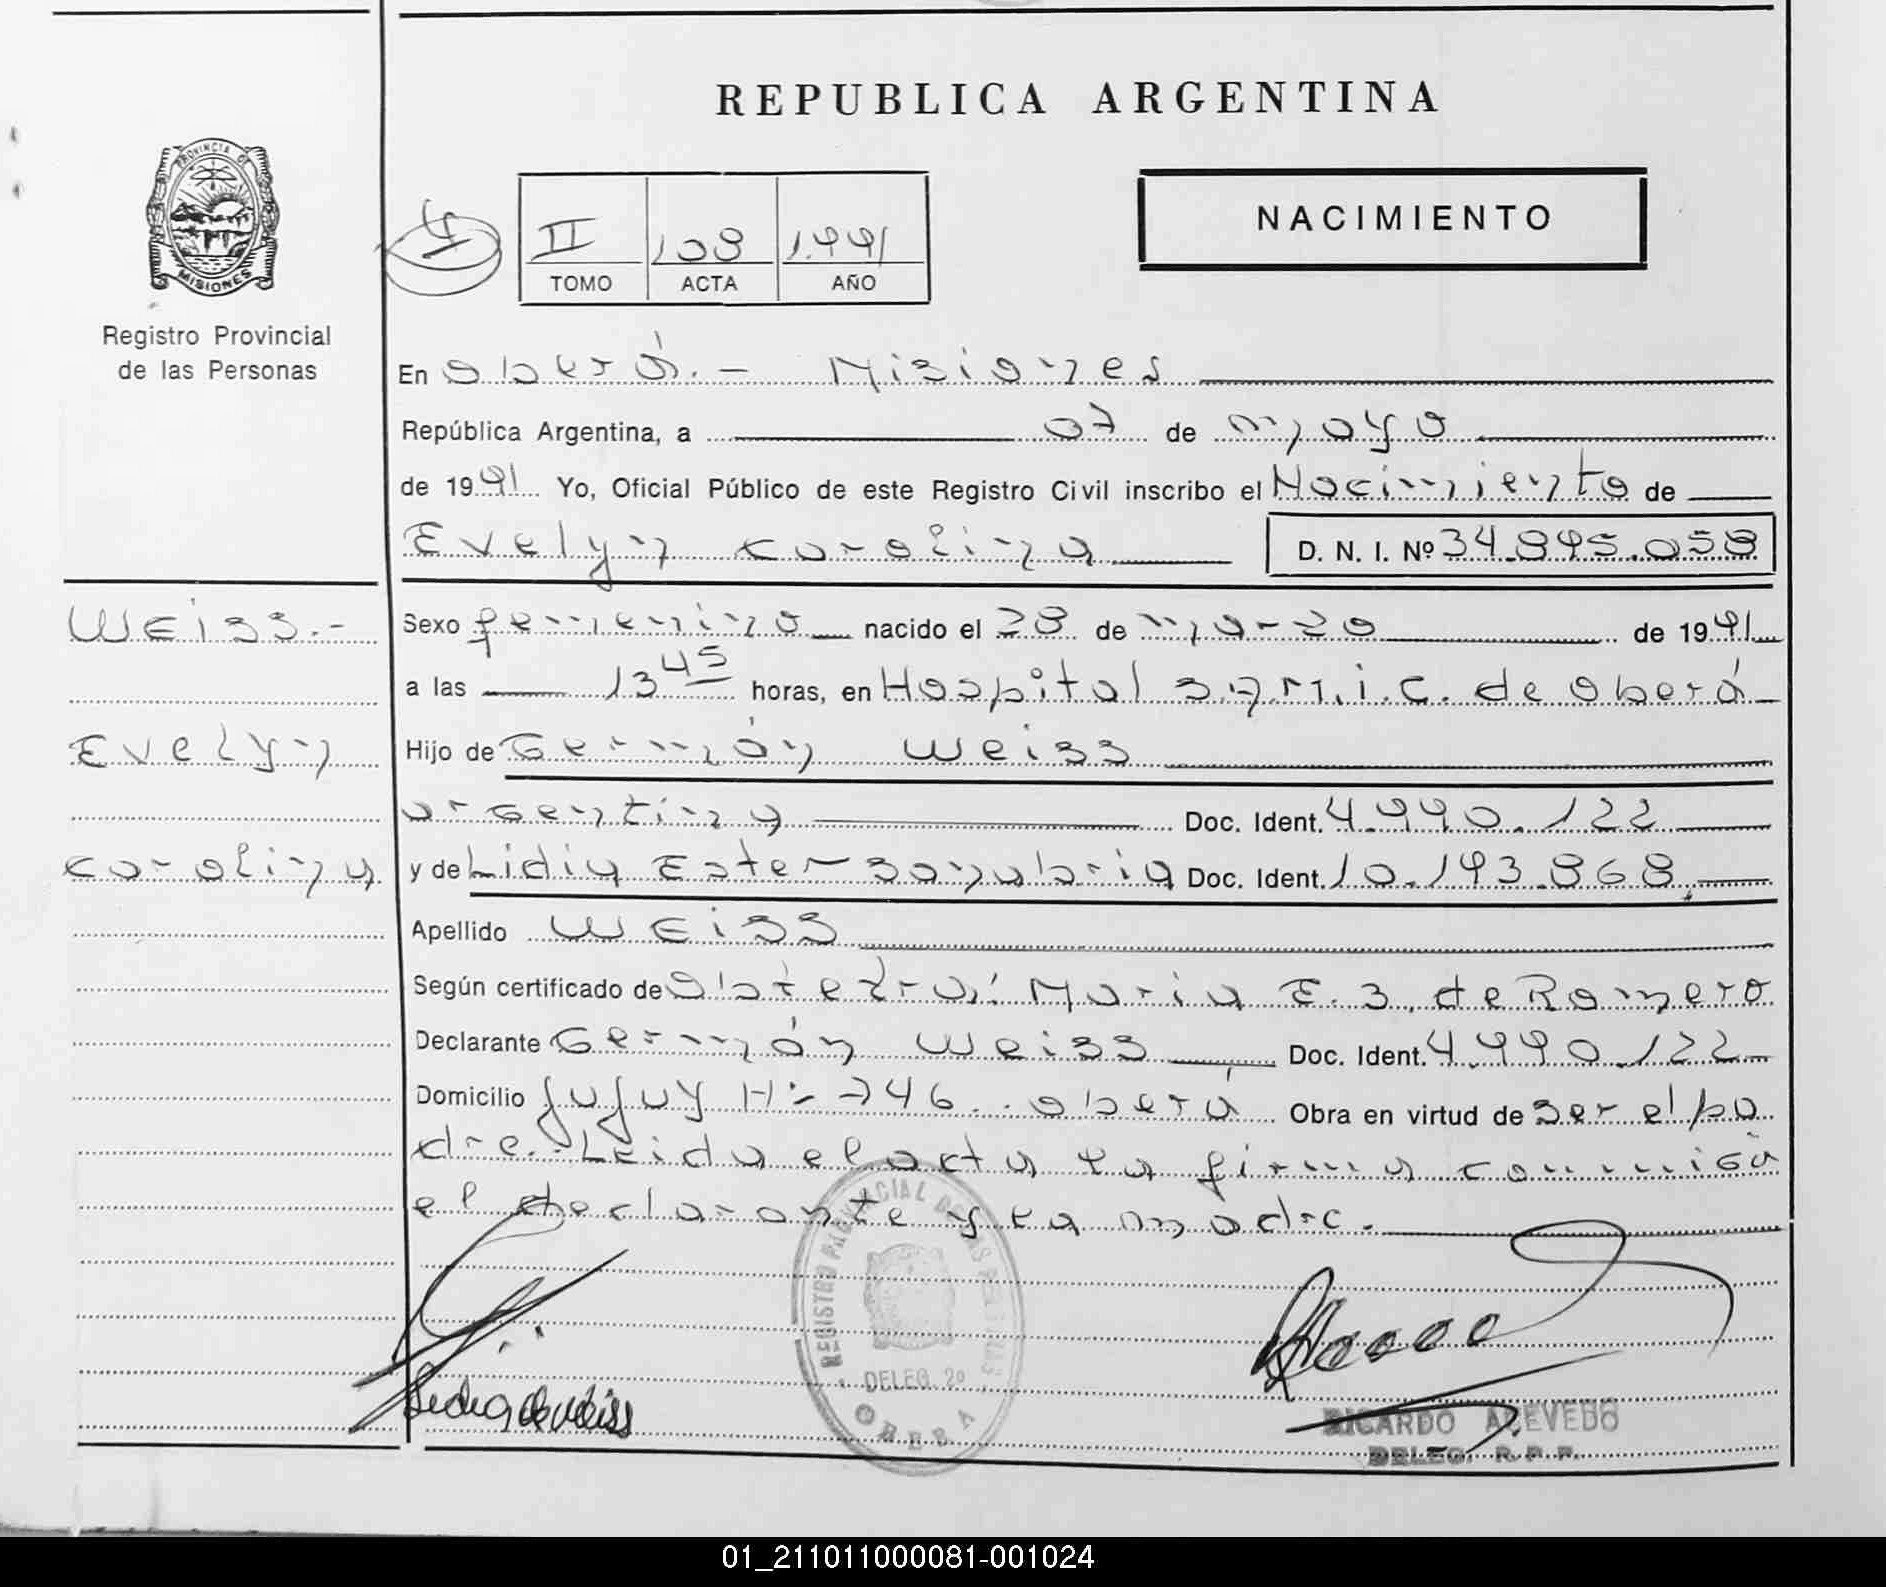 REPUBLICA ARGENTINA
PROVINCIA DE
MISIONES
Registro Provincial
de las Personas
II 108 1.991
TOMO ACTA AÑO
NACIMIENTO
En Oberá.- Misiones
República Argentina, a 07 de mayo
de 1991 Yo, Oficial Público de este Registro Civil inscribo el Nacimiento de
Evelyn Carolina D. N. I. Nº 34.895.058
Weiss.-
Evelyn
Carolina
Sexo femenino nacido el 28 de marzo de 1991
a las 13 45 horas, en Hospital S.A.M.I.C. de Oberá
Hijo de Germán Weiss
argentina Doc. Ident. 4.990.122
y de Lidia Ester Sanabria Doc. Ident. 10.193.868
Apellido Weiss
Según certificado de Obstetra: Maria E. S. de Romero
Declarante Germán Weiss Doc. Ident. 4.990.122
Domicilio Jujuy Nº 746. Oberá Obra en virtud de ser el pa
dre.- Leida el acta la firma conmigo
el declarante y la madre.
REGISTRO PROVINCIAL DE LAS PERSONAS
DELEG. 2º
OBERA
Lidia de Weiss
RICARDO ACEVEDO
DELEG. R. P. P.
01_211011000081-001024